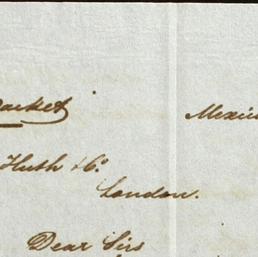 Packet Mexico
Huth & Co.
London.
Dear Sirs